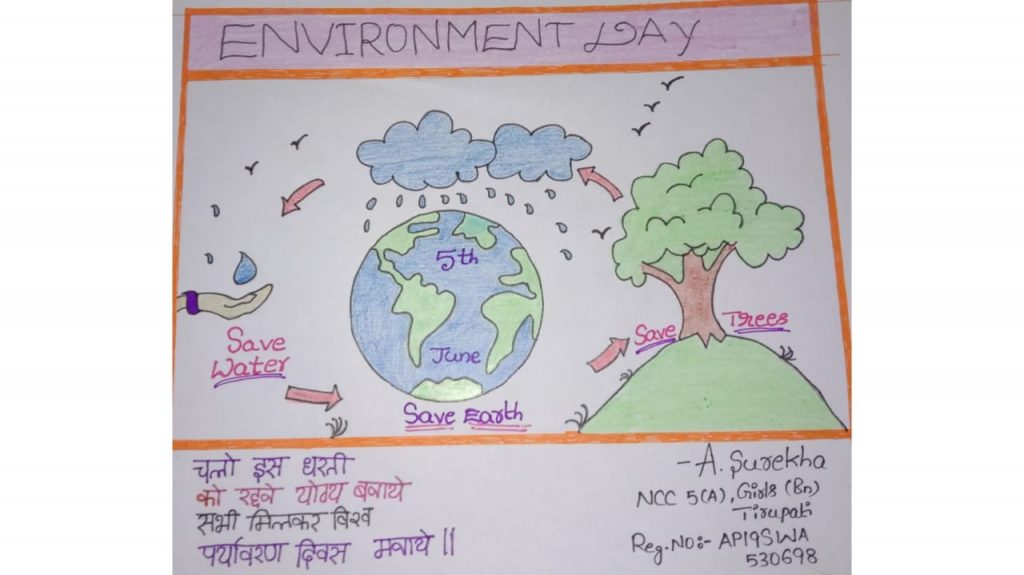 ENVIRONMENT DAY
5th
June
Save
Water
Save Trees
Save Earth
चलो इस धरती
को रहने योग्य बनाये
सभी मिलकर विश्व
पर्यावरण दिवस मनाये ||
- A. Surekha
NCC 5(A), Girls (Bn)
Tirupati
Reg.No:- AP19SWA
530698